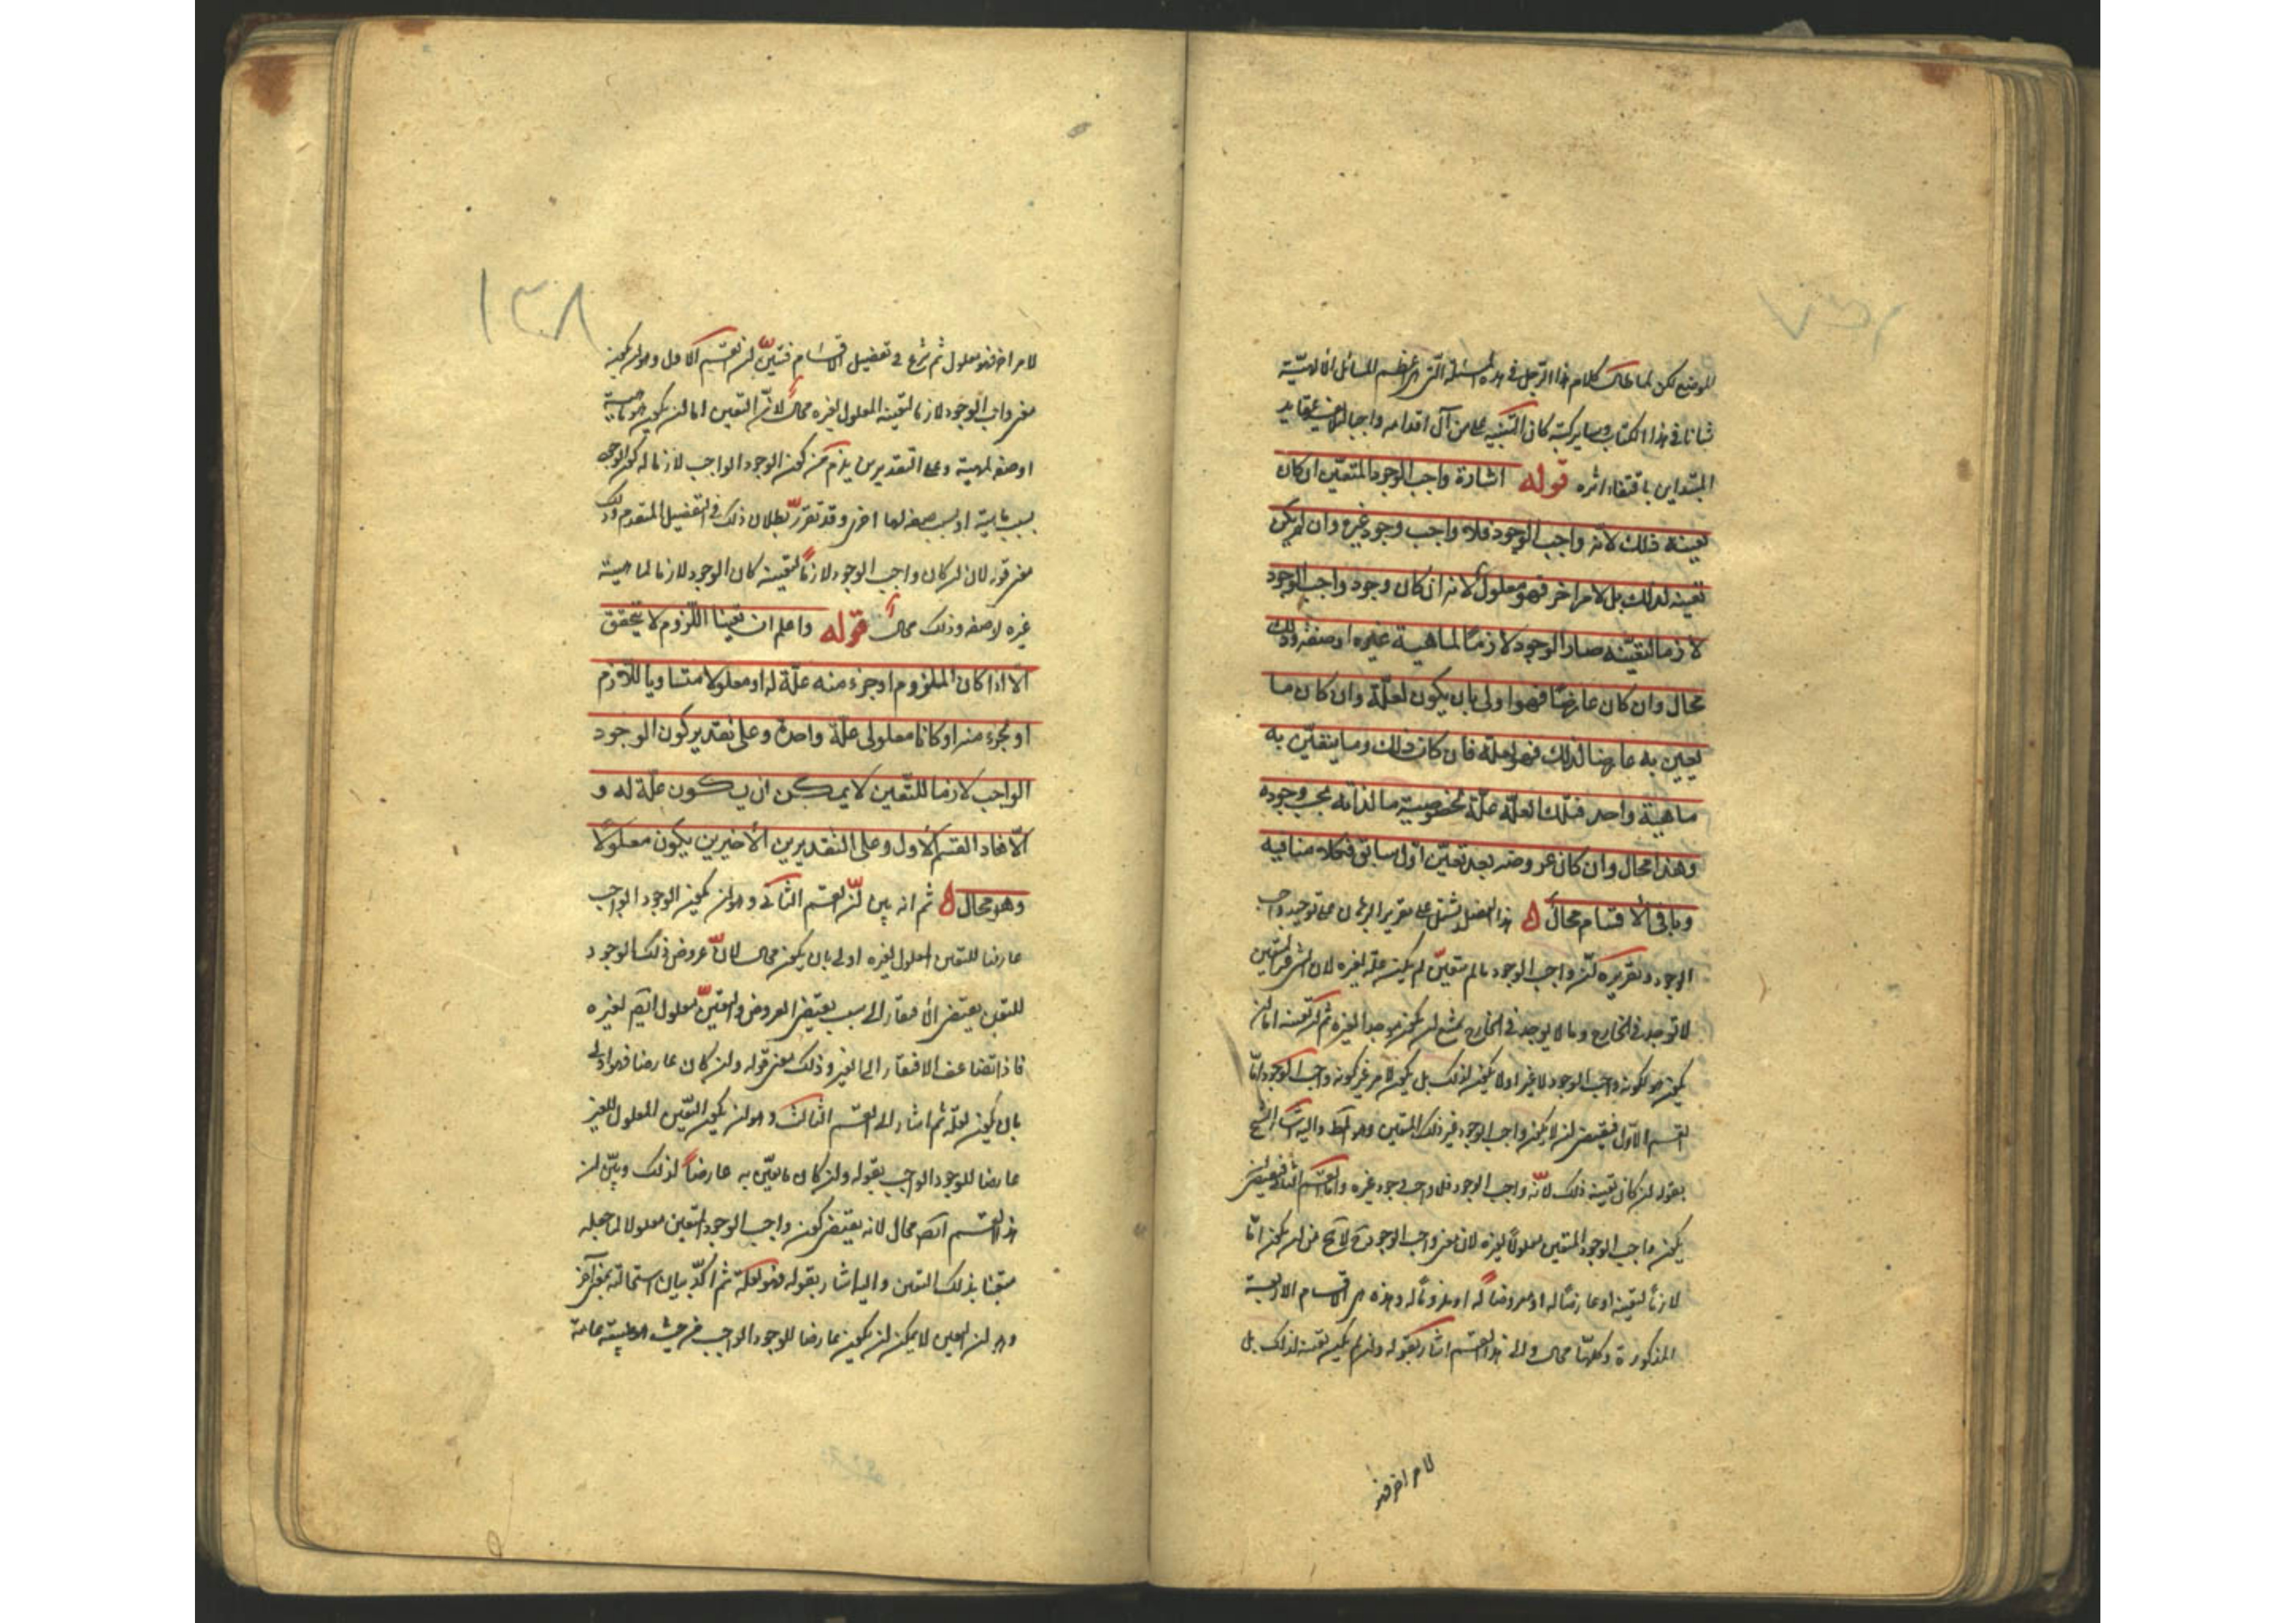 الموضع لكن لما طال كلام هذا الرجل في هذه المسئلة التي هي اعظم المسائل الالهية
شانا في هذا الكتاب وساير كتبه كان التنبيه على مزال اقدامه واجبا لئلا عقايد
المبتداين باقتفاء اثره قوله اشارة واجب الوجود المتعين ان كان
تعينه ذلك لانه واجب الوجود فلا واجب وجود غيره وان لم يكن
تعينه لذلك بل لامر اخر فهو معلول لانه ان كان وجود واجب الوجود
لازما لتعينه صار الوجود لازما لماهية غيره او صفة وذلك
محال وان كان عارضا فهو اولى بان يكون لعلة وان كان ما
يعين به عارضا لذلك فهو لعلة فان كان ذلك وما يتعين به
ماهية واحد فتلك العلة علة لخصوصية ما لذاته يجب وجوده
وهذا محال وان كان عروضه بعد تعين اول سابق فكلامنا فيه
وباقي الاقسام محال ه هذا الفصل يشتمل على تقرير البرهان على توحيد واجب
الوجود وتقريره ان واجب الوجود ما لم يتعين لم يكن علة لغيره لان الشئ غير المتعين
لا توجد في الخارج وما لا يوجد في الخارج يمتنع ان يكون موجدا لغيره ثم ان تعينه اما ان
يكون هو لكونه واجب الوجود لا غير او لا يكون لذلك بل يكون لامر غير كونه واجب الوجود اما
القسم الاول فيقتضي ان لا يكون واجب الوجود غير ذلك المتعين وهو المط واليه اشار الشيخ
بقوله ان كان تعينه ذلك لانه واجب الوجود فلا واجب وجود غيره واما القسم الثاني فيقتضي ان
يكون واجب الوجود المتعين معلولا لغيره لان معنى واجب الوجود ح لا يخ من ان يكون اما
لازما لتعينه او عارضا له او معروضا له او ملزوما له وهذه هي الاقسام الاربعة
المذكورة وكلها محال والى هذا القسم اشار بقوله وان لم يكن تعينه لذلك بل
لامر اخر فهو
١٣٨
لامر اخر فهو معلول ثم شرع في تفصيل الاقسام فتبين ان القسم الاول وهو ان يكون
معنى واجب الوجود لازما لتعينه المعلول لغيره محال لان التعين اما ان يكون هو ماهية
او صفة لمهية وعلى التقديرين يلزم من كون الوجود الواجب لازما له كون الوجود
بسبب ماهية او بسبب صفة لها اخرى وقد تقرر بطلان ذلك في الفصل المتقدم وذلك
معنى قوله لان ان كان واجب الوجود لازما لتعينه كان الوجود لازما لماهية
غيره او صفة وذلك محال قوله واعلم ان تعينا اللزوم لا يتحقق
الا اذا كان الملزوم او جزء منه علة له او معلولا متساويا للازم
او لجزء منه او كانا معلولي علة واحدة وعلى تقدير كون الوجود
الواجب لازما للتعين لا يمكن ان يكون علة له و
الا فعاد القسم الاول وعلى التقديرين الاخيرين يكون معلولا
وهو محال ه ثم انه بين ان القسم الثاني وهو ان يكون الوجود الواجب
عارضا للتعين المعلول لغيره اولى بان يكون محال لان عروض ذلك الوجود
للتعين يقتضي الافتقار الى سبب يقتضي العروض والتعين معلول ايضا لغيره
فاذا تضاعف الافتقار الى الغير وذلك معنى قوله وان كان عارضا فهو اولى
بان يكون لعلة ثم اشار الى القسم الثالث وهو ان يكون التعين المعلول للغير
عارضا للوجود الواجب بقوله وان كان ما تعين به عارضا لذلك وبين ان
هذا القسم ايضا محال لانه يقتضي كون واجب الوجود المتعين معلولا لما جعله
متعينا بذلك التعين واليه اشار بقوله فهو لعلة ثم اكد بيان استحالته بمعنى آخر
وهو ان التعين لا يمكن ان يكون عارضا للوجود الواجب من حيث هو طبيعة عامة